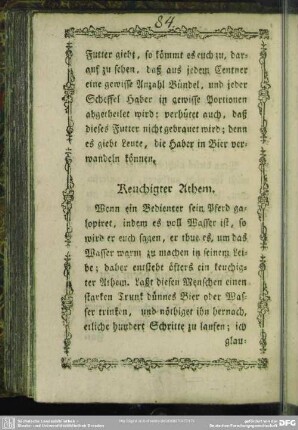 84
Futter giebt, so kömmt es euch zu, dar-
auf zu sehen, daß aus jedem Centner
eine gewisse Anzahl Bündel, und jeder
Scheffel Haber in gewisse Portionen
abgetheilet wird; verhütet auch, daß
dieses Futter nicht gebrauet wird; denn
es giebt Leute, die Haber in Bier ver-
wandeln können.
Keuchigter Athem.
Wenn ein Bedienter sein Pferd ga-
lopiret, indem es voll Wasser ist, so
wird er euch sagen, er thue es, um das
Wasser warm zu machen in seinem Lei-
be; daher entsteht öfters ein keuchig-
ter Athem. Laßt diesen Menschen einen
starken Trunk dünnes Bier oder Was-
ser trinken, und nöthiget ihn hernach,
etliche hundert Schritte zu laufen; ich
glau-